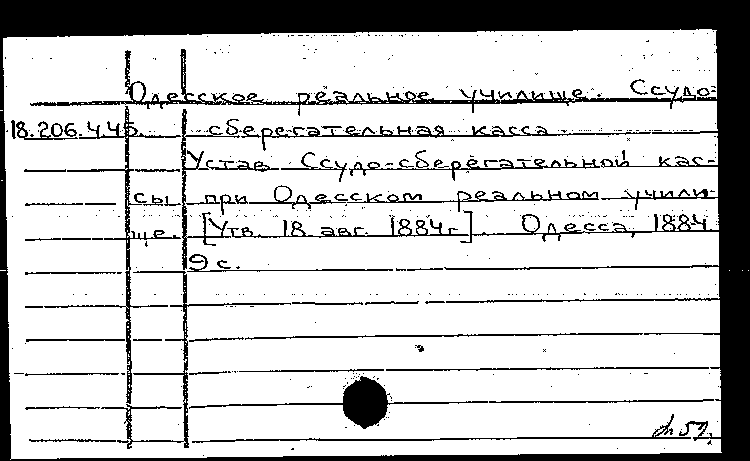 Одесское реальное училище. Ссудо-
18.206.4.45. сберегательная касса
Устав Ссудо-сберегательной кас-
сы при Одесском реальном учили-
ще. [Утв. 18 авг. 1884г.]. Одесса, 1884.
9 с.